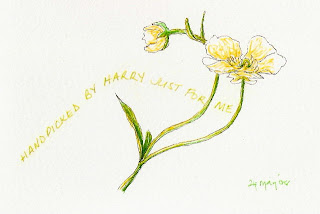 HANDPICKED BY HARRY JUST FOR ME
24 MAY '08